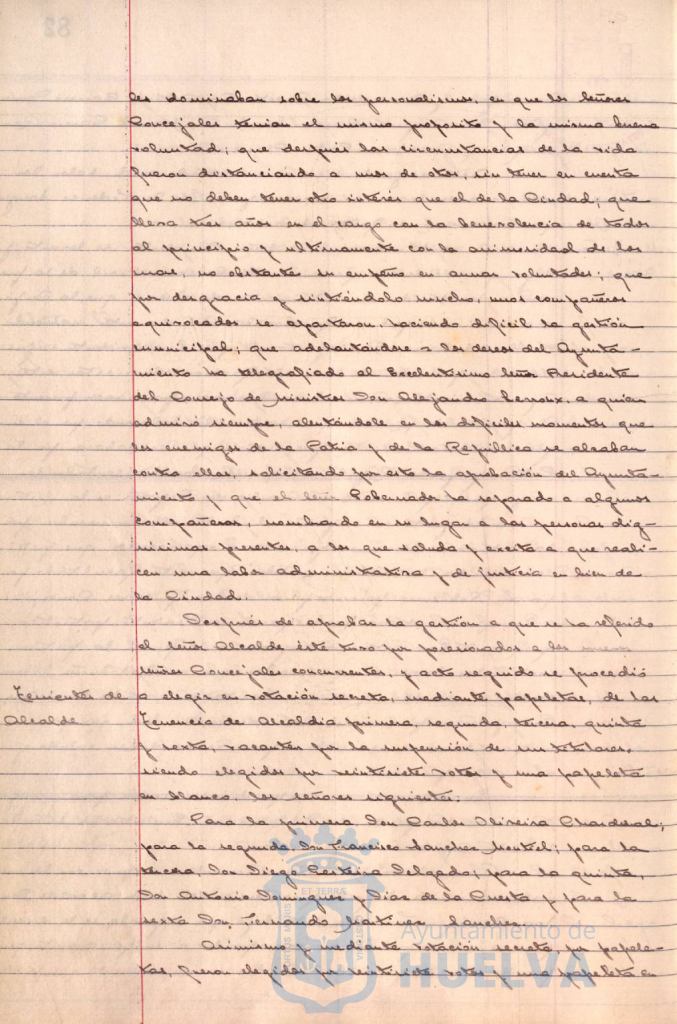 les dominaban sobre los personalismos, en que los Señores
Concejales tenian el mismo proposito y la misma buena
voluntad; que despues las circunstancias de la vida
fueron distanciando a unos de otros, sin tener en cuenta
que no deben tener otro interés que el de la Ciudad; que
lleva tres años en el cargo con la benevolencia de todos
al principio y ultimamente con la animosidad de los
mas, no obstante su empeño en aunar voluntades; que
por desgracia y sintiéndolo mucho, unos compañeros
equivocados se apartaron, haciendo dificil la gestión
municipal; que adelantándose a los deseos del Ayunta-
miento ha telegrafiado al Excelentisimo Señor Presidente
del Consejo de Ministros Don Alejandro Lerroux, a quien
admiró siempre, alentándole en los dificiles momentos que
los enemigos de la Patria y de la República se alzaban
contra ellas, solicitando por esto la aprobación del Ayunta-
miento y que el Señor Gobernador ha separado a algunos
compañeros, nombrando en su lugar a las personas dig-
nisimas presentes, a los que saluda y excita a que reali-
cen una labor administrativa y de justicia en bien de
la Ciudad.
Después de aprobar la gestión a que se ha referido
el señor Alcalde éste tuvo por posesionados a los nuevos
señores Concejales concurrentes, y acto seguido se procedió
Tenientes de
Alcalde
a elegir en votación secreta, mediante papeletas, de las
Tenencia de Alcaldia primera, segunda, tercera, quinta
y sexta, vacantes por la suspensión de sus titulares,
siendo elegidos por veintisiete votos y una papeleta
en blanco, los señores siguientes:
Para la primera Don Carlos Oliveira Chardenal;
para la segunda, Don Francisco Sanchez ; para la
tercera, Don Diego Delgado; para la quinta,
Don Antonio Dominguez y Diaz de la Cuesta y para la
sexta Don Fernando Martinez Sanchez.
Asimismo y mediante votación secreta por papele-
tas, fueron elegidos por veintisiete votos y una papeleta en
Ayuntamiento de
HUELVA